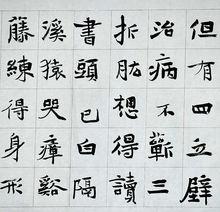 但有四立壁
治病不蘄三
折肱想得讀
書頭已白隔
溪猿哭瘴谿
藤練得身形